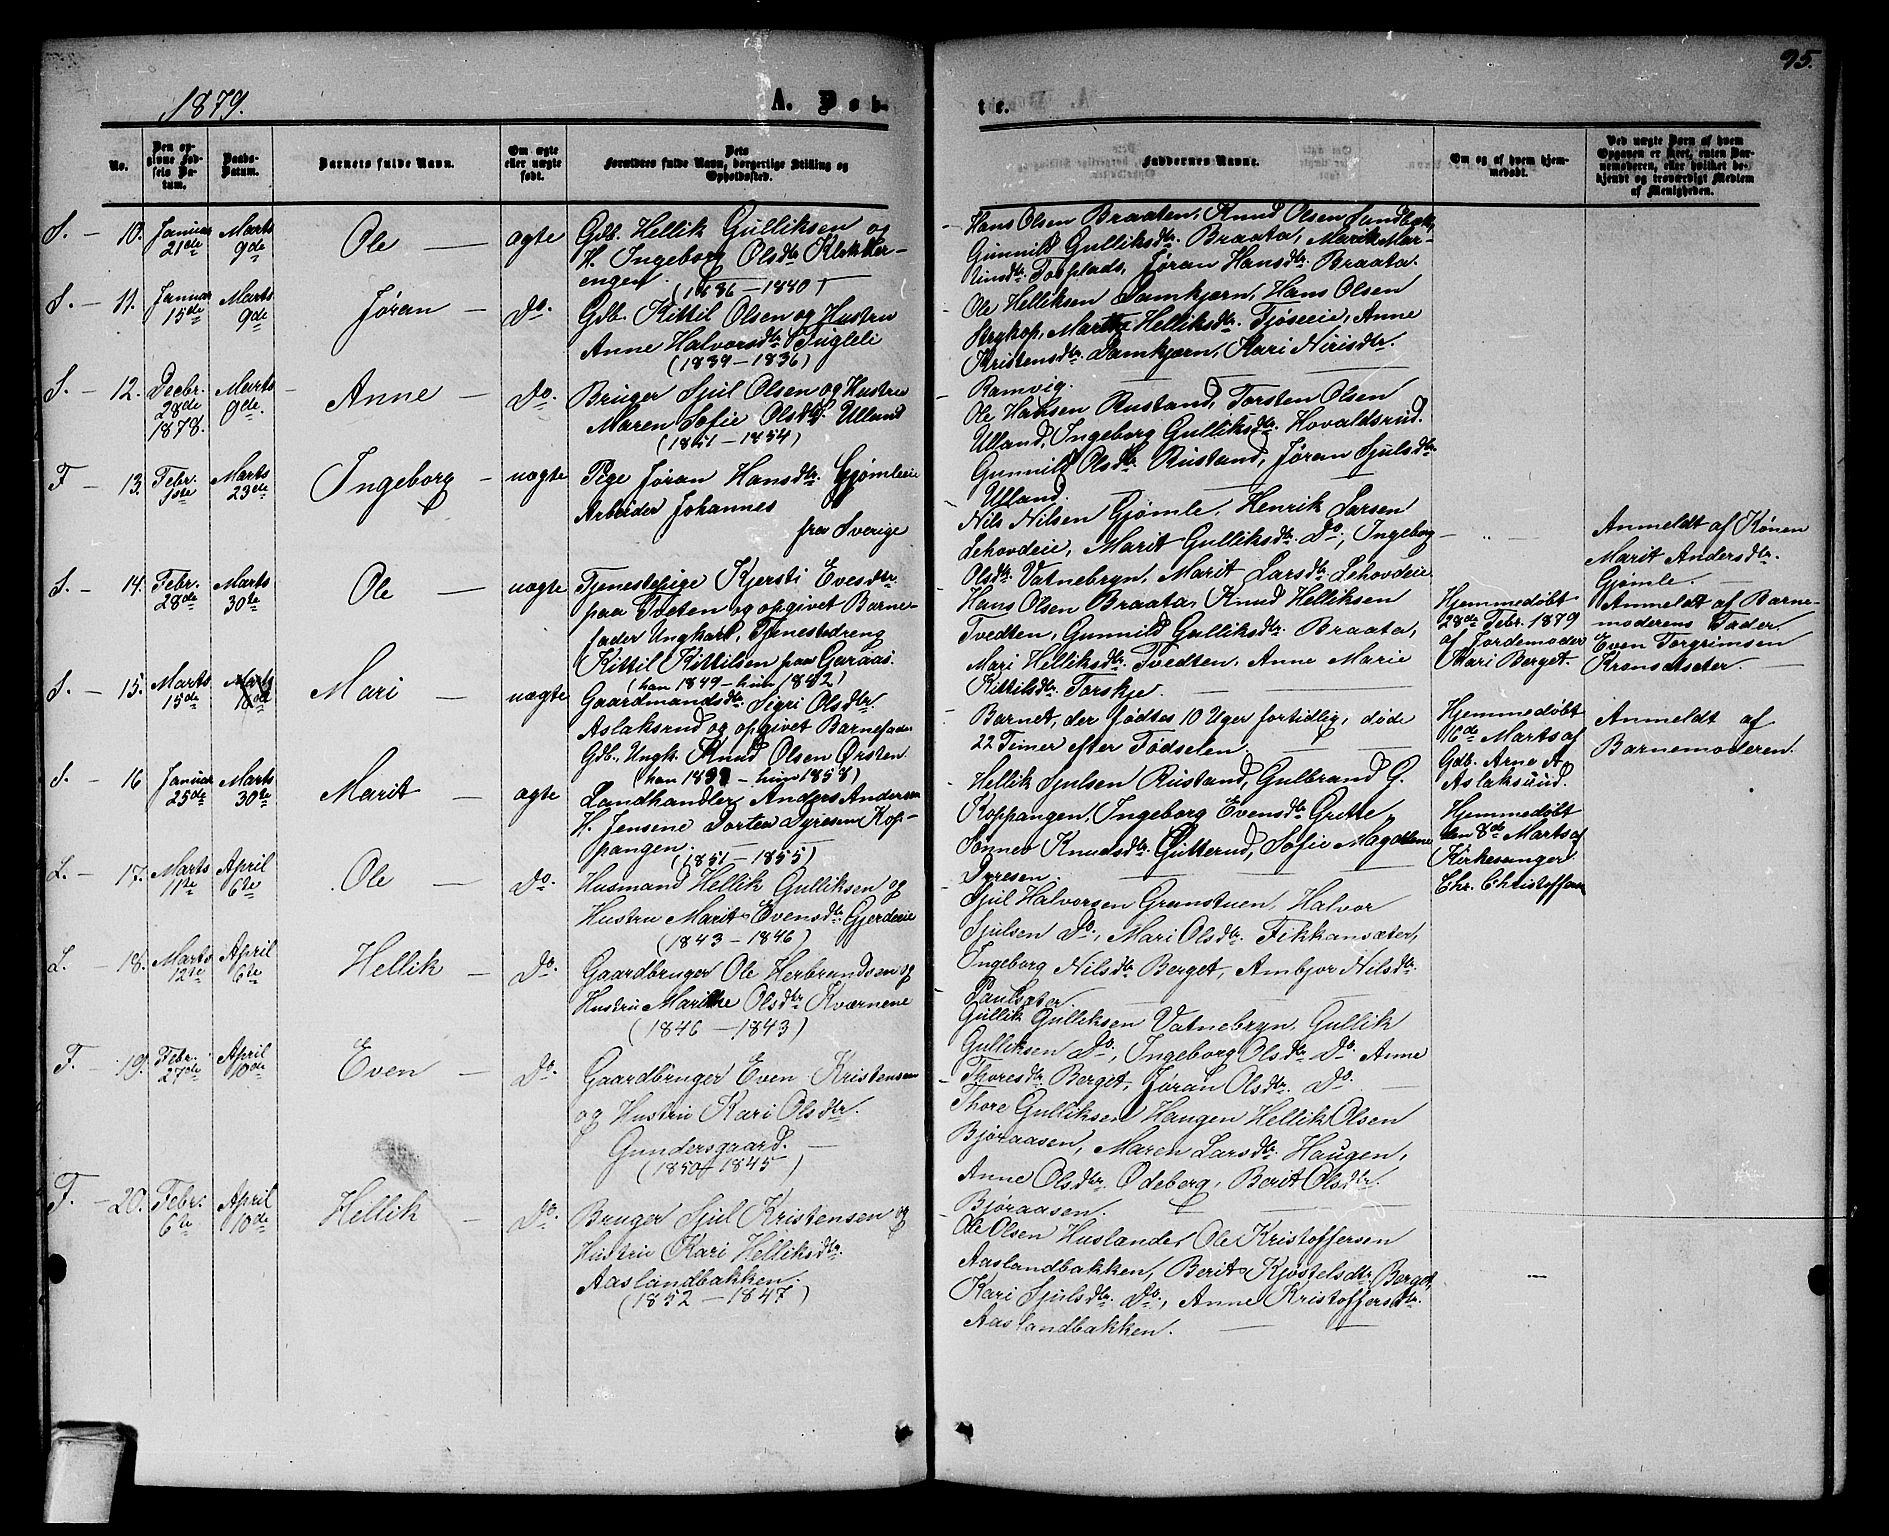 1879.
A. Døb-
te.
95.
No.
Den op-
givne Fød-
sels Da-
tum.
Daabs-
Datum.
Barnets fulde Navn.
Om ægte
eller uægte
født.
Dets
Forældres fulde Navn, borgerlige Stilling og
Opholdssted.
Faddernes Navne.
Om og af hvem hjem-
medøbt.
Ved uægte Børn af hvem
Opgaven er skeet, enten Bar-
nemoderen, eller hvilket be-
kjendt og troværdigt Medlem
af Menigheden.
S. - 10. Januar 21de Marts 9de Ole ægte
Gdb. Hellik Gulliksen og
H. Ingeborg Olsdtr Klokker-
engen.
(1836-1840)
Hans Olsen Braaten, Knud Olsen
Gunnild Gulliksdtr. Braata, Marit Mar-
Torplads, Jøran Hansdtr. Braata.
S. - 11. Januar 15de Marts 9de Jøran Do.
Gdb. Kittil Olsen og Hustru
Anne Halvorsdtr Fugleli
(1839-1836)
Ole Helliksen Damkjærn, Hans Olsen
Helliksdtr. Fjøseeie, Anne
Kristensdtr. Damkjærn, Kari Nirisdtr.
Ramvig.
S. - 12. Decbr. 28de 1878. Marts 9de. Anne Do.
Bruger Sjul Olsen og Hustru
Maren Sofie Olsdtr. Ulland
(1851-1854)
Ole Hansen Rustand, Torsten Olsen
Ulland, Ingeborg Gulliksdtr. Hovaldsrud.
Gunnild Olsdtr Rustand, Jøran Sjulsdtr
Ulland.
F - 13. Febr. 1ste Marts 23de Ingeborg uægte
Pige Jøran Hansdtr. Gjømleeie
Arbeider Johannes
fra Sverige
Nils Nilsen Gjømle, Henrik Larsen
Lehovdeie, Marit Gulliksdtr. Do, Ingeborg
Olsdtr. Vatnebryn, Marit Larsdtr Lehovdeie
Anmeldt af Konen
Marit Andersdtr.
Gjømle.
S. - 14. Febr. 28de Marts 30te Ole uægte
Tjenestepige Kjersti Evesdtr.
paa Tveten og opgivet Barne-
fader Ungkarl, Tjenestedreng
Kittil Kittilsen paa Garaas.
(han 1849 - hun 1842)
Hans Olsen Braata, Knud Helliksen
Tvedten, Gunnild Gulliksdtr. Braata,
Mari Helliksdtr. Tvedten, Anne Marie
Kittilsdtr. Torskje.
Hjemmedøbt
28de Febr. 1879
af Jordemoder
Mari Berget.
Anmeldt af Barne-
moderens Fader
Even Torgrimsen
Kronsætseter.
S. - 15. Marts 15de Marts Mari uægte
Gaardmandsdtr. Sigri Olsdtr.
Aslaksrud og opgivet Barnefader
Gdb. Ungk. Knud Olsen Ørsten
hun 1858)
Barnet, der fødtes 10 Uger fortidlig, døde
22 Timer efter Fødselen.
Hjemmedøbt
16de Marts af
Gdb. Arne A.
Aslaksrud.
Anmeldt af
Barnemoderen.
S. - 16 Januar 25de Marts 30te Marit ægte
Landhandler Anders Andersen
H. Jensene Dortea Dyresen Kop-
pangen.
(1851-1855)
Hellik Sjulsen Rustand, Gulbrand G.
Koppangen, Ingeborg Evensdtr Grette,
Sønnev Knudsdtr. Gutterud, Sofie Magdalene
Dyresen.
Hjemmedøbt
den 8de Marts af
Kirkesanger
Chr. Christoffersen
L. - 17. Marts 11te April 6te Ole Do.
Husmand Hellik Gulliksen og
Hustru Marit Evensdtr Gjerdeeie
(1843-1846)
Sjul Halvorsen Grønstuen, Halvor
Sjulsen Do, Mari Olsdtr. Fikkansæter,
Ingeborg Nilsdtr Berget, Ambjør Nilsdtr.
Paulsæter.
L. - 18. Marts 12te April 6te Hellik Do.
Gaardbruger Ole Herbrandsen og
Hustru Marithe Olsdtr Kværnene
(1846-1843)
Gullik Gulliksen Vatnebryn, Gullik
Gulliksen Do, Ingeborg Olsdtr Do. Anne
Thoresdtr Berget, Jøran Olsdtr. Do.
F. - 19. Febr. 27de April 10de Even Do.
Gaardbruger Even Kristensen
og Hustru Kari Olsdtr.
Gundersgaard.
(1850-1845)
Thore Gulliksen Haugen, Hellik Olsen
Bjøraasen, Maren Larsdtr. Haugen,
Anne Olsdtr. Ødeberg, Berit Olsdtr.
Bjøraasen.
F. - 20. Febr. 6te April 10de Hellik Do.
Bruger Sjul Kristensen og
Hustru Kari Helliksdtr.
Aaslandbakken.
(1852-1847)
Ole Olsen Huslande, Ole Kristoffersen
Aaslandbakken, Berit Kjøstelsdtr. Berget,
Kari Sjulsdtr. Do, Anne Kristoffersdtr.
Aaslandbakken.